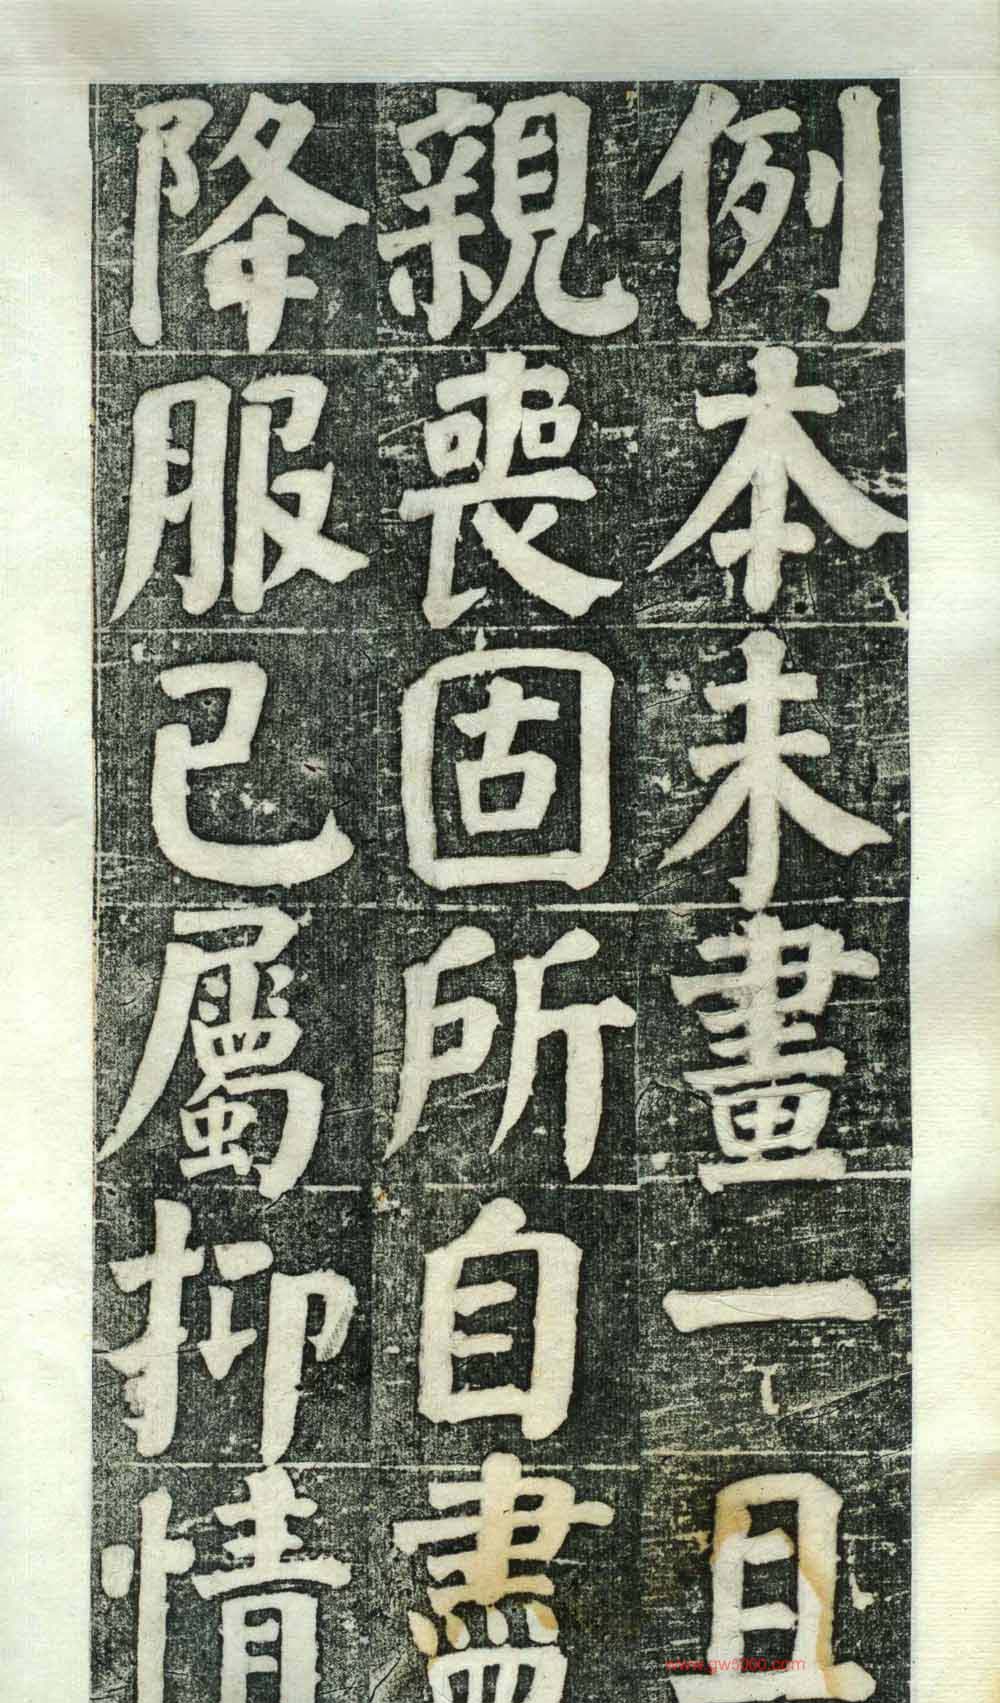 例本未畫一且
親喪固所自盡
降服已屬抑情
www.gw5000.com